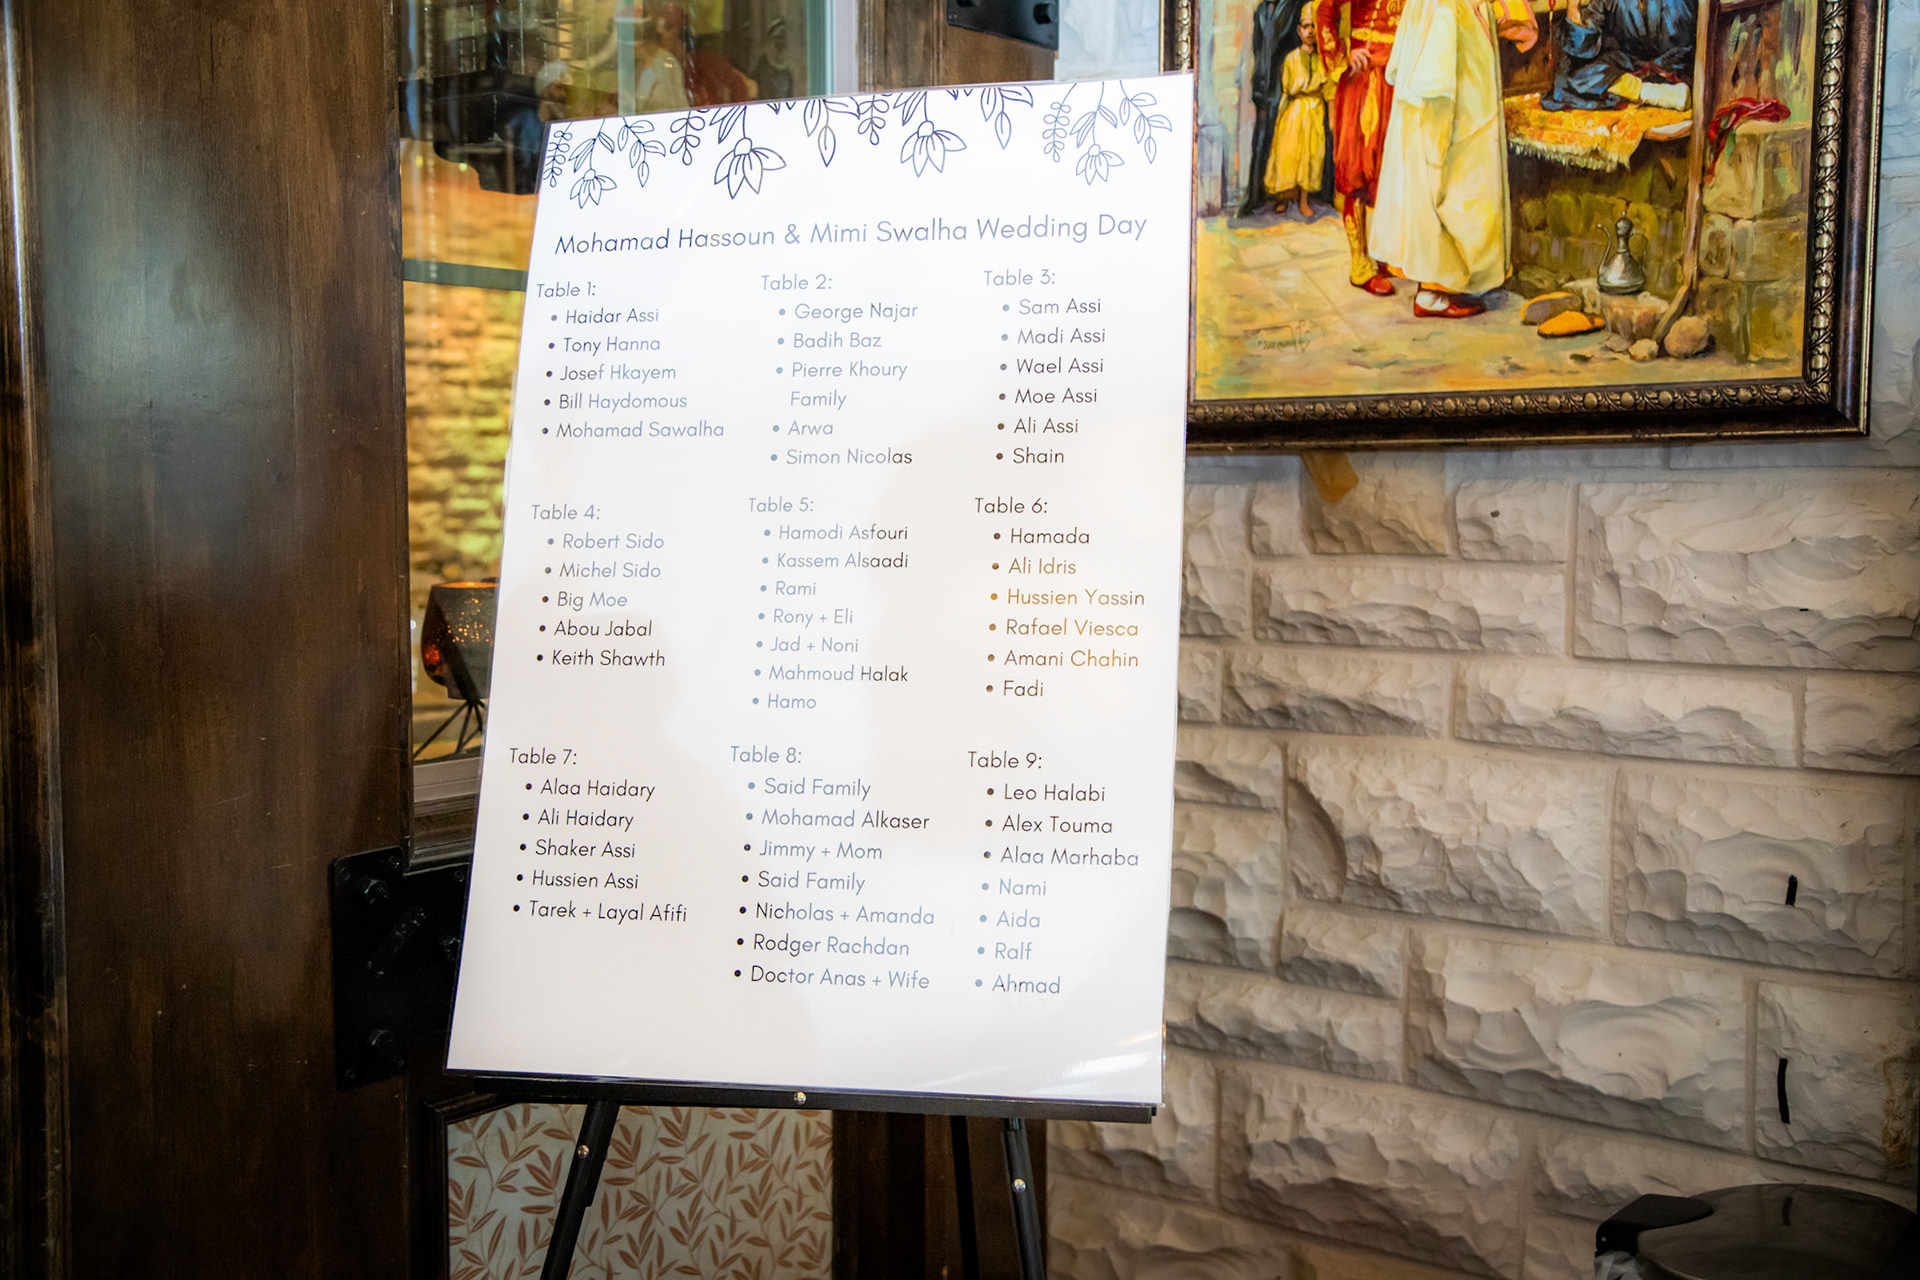 Mohamad Hassoun & Mimi Swalha Wedding Day
Table 1:
• Haidar Assi
• Tony Hanna
• Josef Hkayem
• Bill Haydomous
• Mohamad Sawalha
Table 2:
• George Najar
• Badih Baz
• Pierre Khoury
Family
• Arwa
• Simon Nicolas
Table 3:
• Sam Assi
• Madi Assi
• Wael Assi
• Moe Assi
• Ali Assi
• Shain
Table 4:
• Robert Sido
• Michel Sido
• Big Moe
• Abou Jabal
• Keith Shawth
Table 5:
• Hamodi Asfouri
• Kassem Alsaadi
• Rami
• Rony + Eli
• Jad + Noni
• Mahmoud Halak
• Hamo
Table 6:
• Hamada
• Ali Idris
• Hussien Yassin
• Rafael Viesca
• Amani Chahin
• Fadi
Table 7:
• Alaa Haidary
• Ali Haidary
• Shaker Assi
• Hussien Assi
• Tarek + Layal Afifi
Table 8:
• Said Family
• Mohamad Alkaser
• Jimmy + Mom
• Said Family
• Nicholas + Amanda
• Rodger Rachdan
• Doctor Anas + Wife
Table 9:
• Leo Halabi
• Alex Touma
• Alaa Marhaba
• Nami
• Aida
• Ralf
• Ahmad